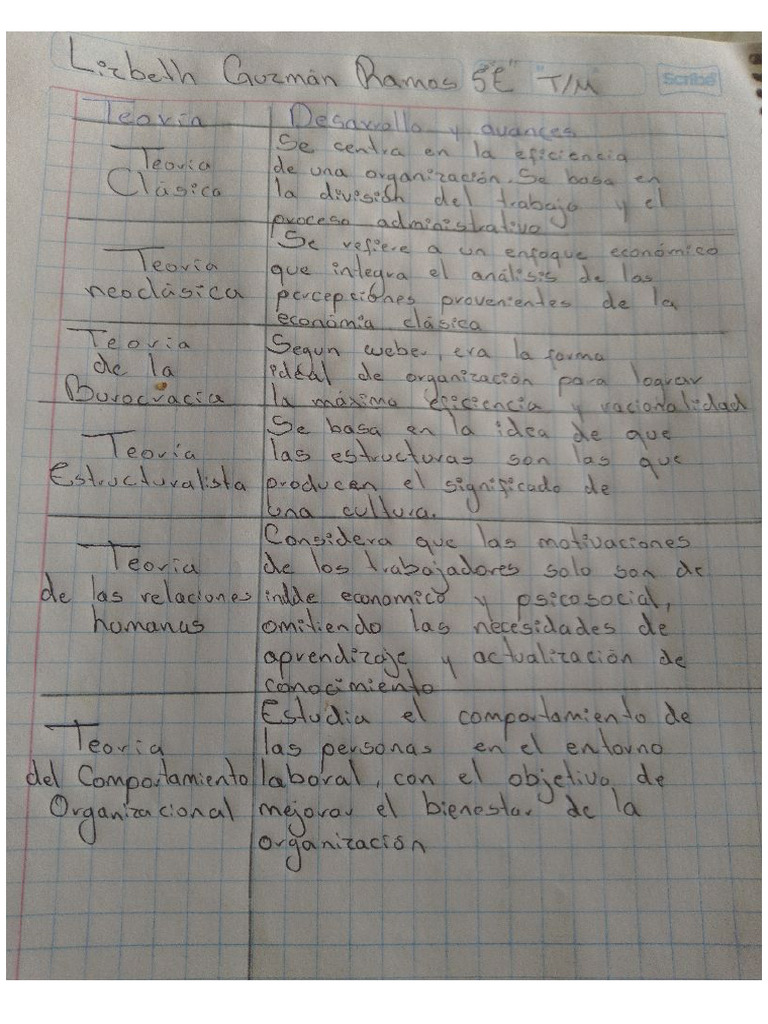 Lizbeth Guzmán Ramos 5°E "T/M"
Scribe
Teoria | Desarrollo y avances
Teoria Clásica | Se centra en la eficiencia
de una organización. Se basa en
la división del trabajo y el
proceso administrativo
Teoria neoclásica | Se refiere a un enfoque económico
que integra el análisis de las
percepciones provenientes de la
económia clásica
Teoria de la Burocracia | Segun weber, era la forma
ideal de organización para lograr
la máxima eficiencia y racionalidad
Teoria Estructuralista | Se basa en la idea de que
las estructuras son las que
producen el significado de
una cultura.
Teoria de las relaciones humanas | Considera que las motivaciones
de los trabajadores solo son de
indde economico y psicosocial,
omitiendo las necesidades de
aprendizaje y actualización de
conocimiento
Teoria del Comportamiento Organizacional | Estudia el comportamiento de
las personas en el entorno
laboral, con el objetivo de
mejorar el bienestar de la
organización